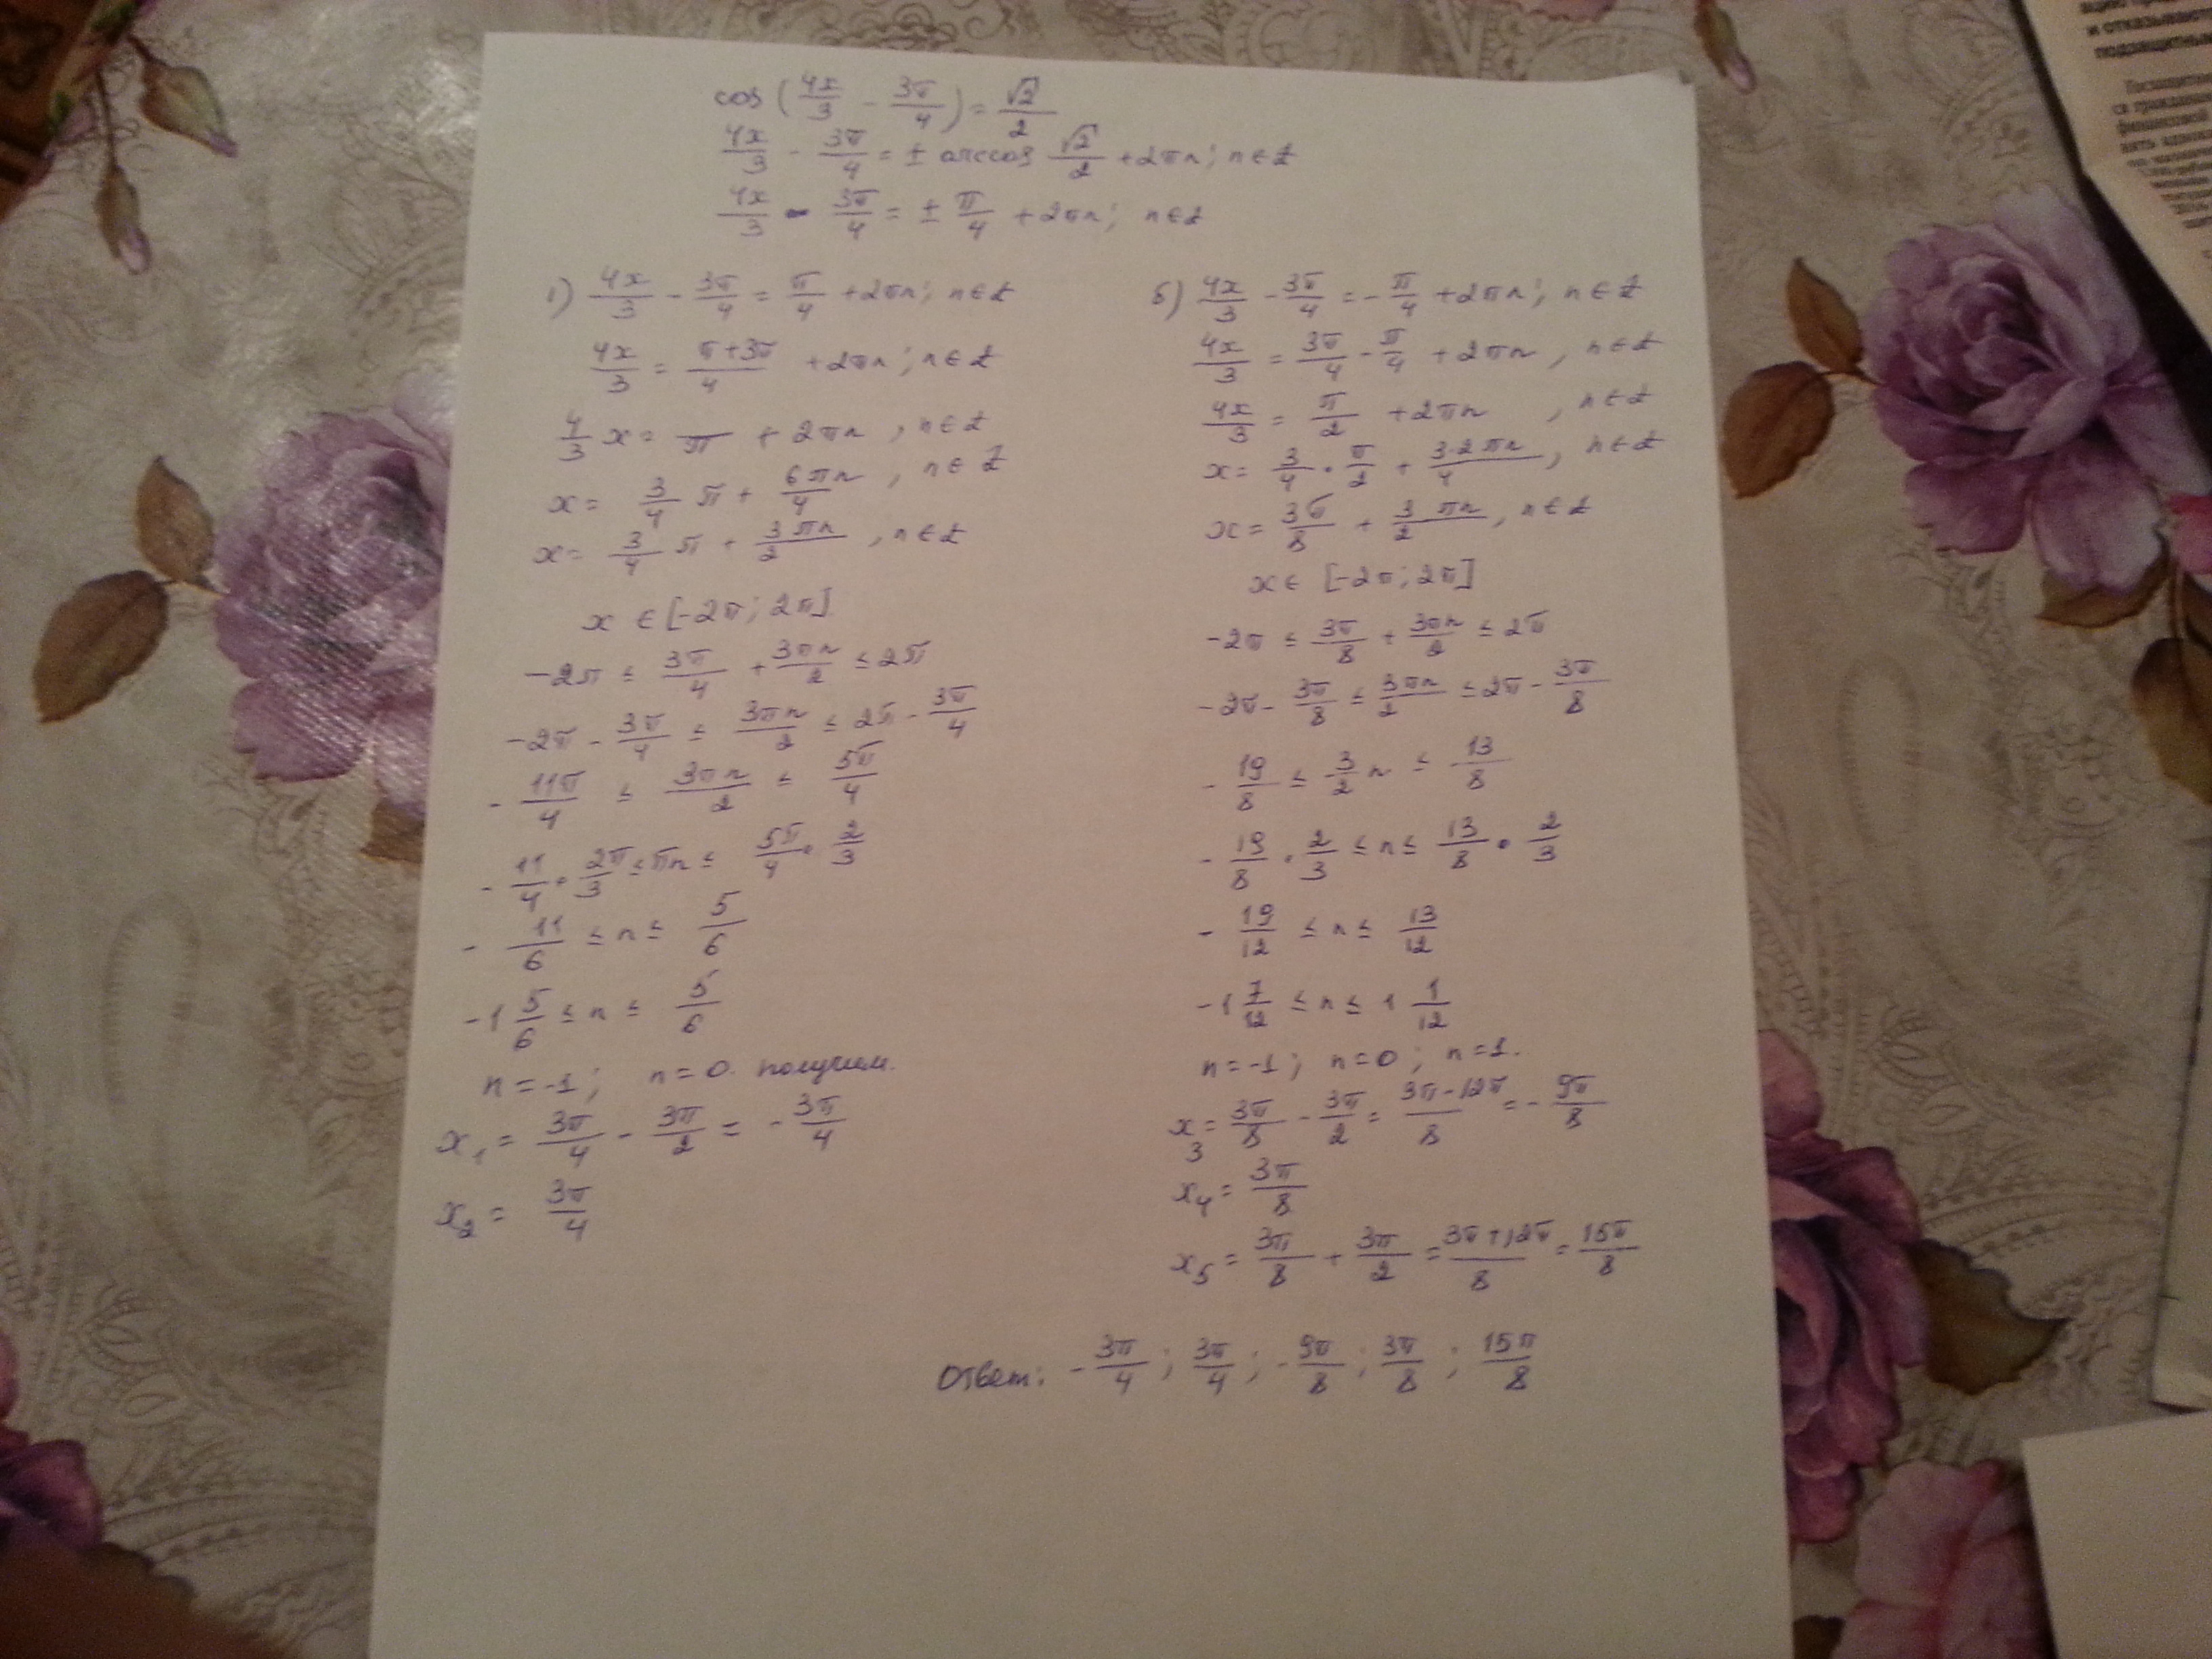 cos(4x/3 - 3π/4) = √2/2
4x/3 - 3π/4 = ± arccos √2/2 + 2πn; n∈Z
4x/3 - 3π/4 = ± π/4 + 2πn; n∈Z
1) 4x/3 - 3π/4 = π/4 + 2πn; n∈Z
4x/3 = (π+3π)/4 + 2πn; n∈Z
4/3 x = π + 2πn, n∈Z
x = 3/4 π + 6πn/4, n∈Z
x = 3/4 π + 3πn/2, n∈Z
x ∈ [-2π; 2π]
-2π ≤ 3π/4 + 3πn/2 ≤ 2π
-2π - 3π/4 ≤ 3πn/2 ≤ 2π - 3π/4
- 11π/4 ≤ 3πn/2 ≤ 5π/4
- 11/4 · 2π/3 ≤ πn ≤ 5π/4 · 2/3
- 11/6 ≤ n ≤ 5/6
-1 5/6 ≤ n ≤ 5/6
n = -1; n = 0. получим.
x₁ = 3π/4 - 3π/2 = - 3π/4
x₂ = 3π/4
б) 4x/3 - 3π/4 = - π/4 + 2πn; n∈Z
4x/3 = 3π/4 - π/4 + 2πn, n∈Z
4x/3 = π/2 + 2πn, n∈Z
x = 3/4 · π/2 + 3·2πn/4, n∈Z
x = 3π/8 + 3πn/2, n∈Z
x ∈ [-2π; 2π]
-2π ≤ 3π/8 + 3πn/2 ≤ 2π
-2π - 3π/8 ≤ 3πn/2 ≤ 2π - 3π/8
- 19/8 ≤ 3/2 n ≤ 13/8
- 19/8 · 2/3 ≤ n ≤ 13/8 · 2/3
- 19/12 ≤ n ≤ 13/12
-1 7/12 ≤ n ≤ 1 1/12
n = -1; n = 0; n = 1.
x₃ = 3π/8 - 3π/2 = (3π-12π)/8 = - 9π/8
x₄ = 3π/8
x₅ = 3π/8 + 3π/2 = (3π+12π)/8 = 15π/8
Ответ: - 3π/4; 3π/4; - 9π/8; 3π/8; 15π/8
и отказывает
подзащитны